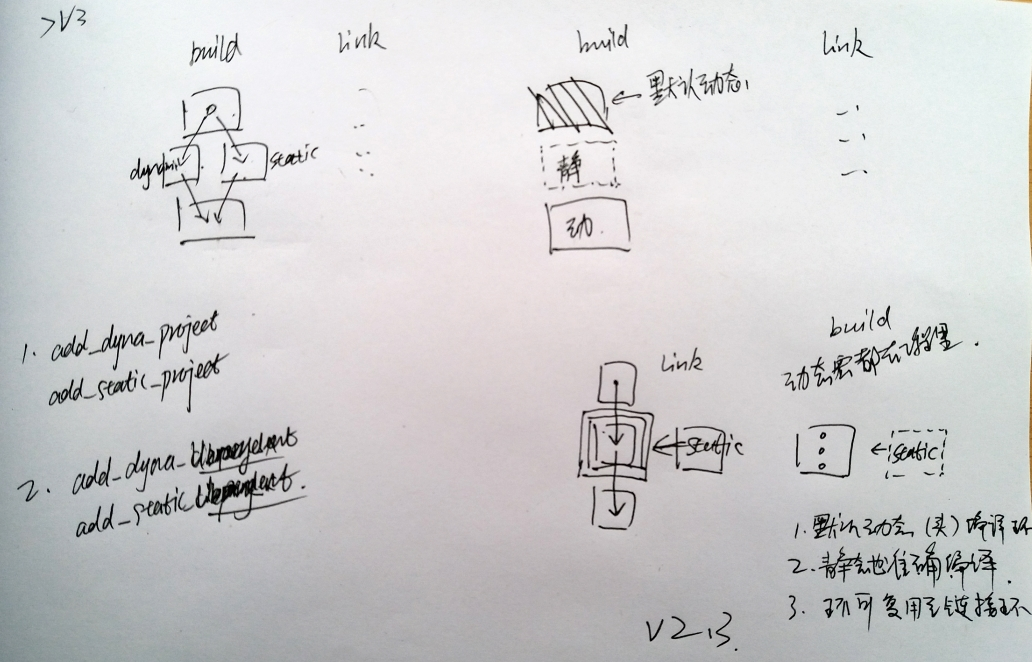 >V3
build
link
dynamic
static
build
link
默认动态
静
动
1. add_dyna_project
add_static_project
2. add_dyna_
add_static_
link
static
build
动态需都在工程里.
static
1. 默认动态(头)编译环
2. 静态也准确编译.
3. 环可复用至链接环
V2.3